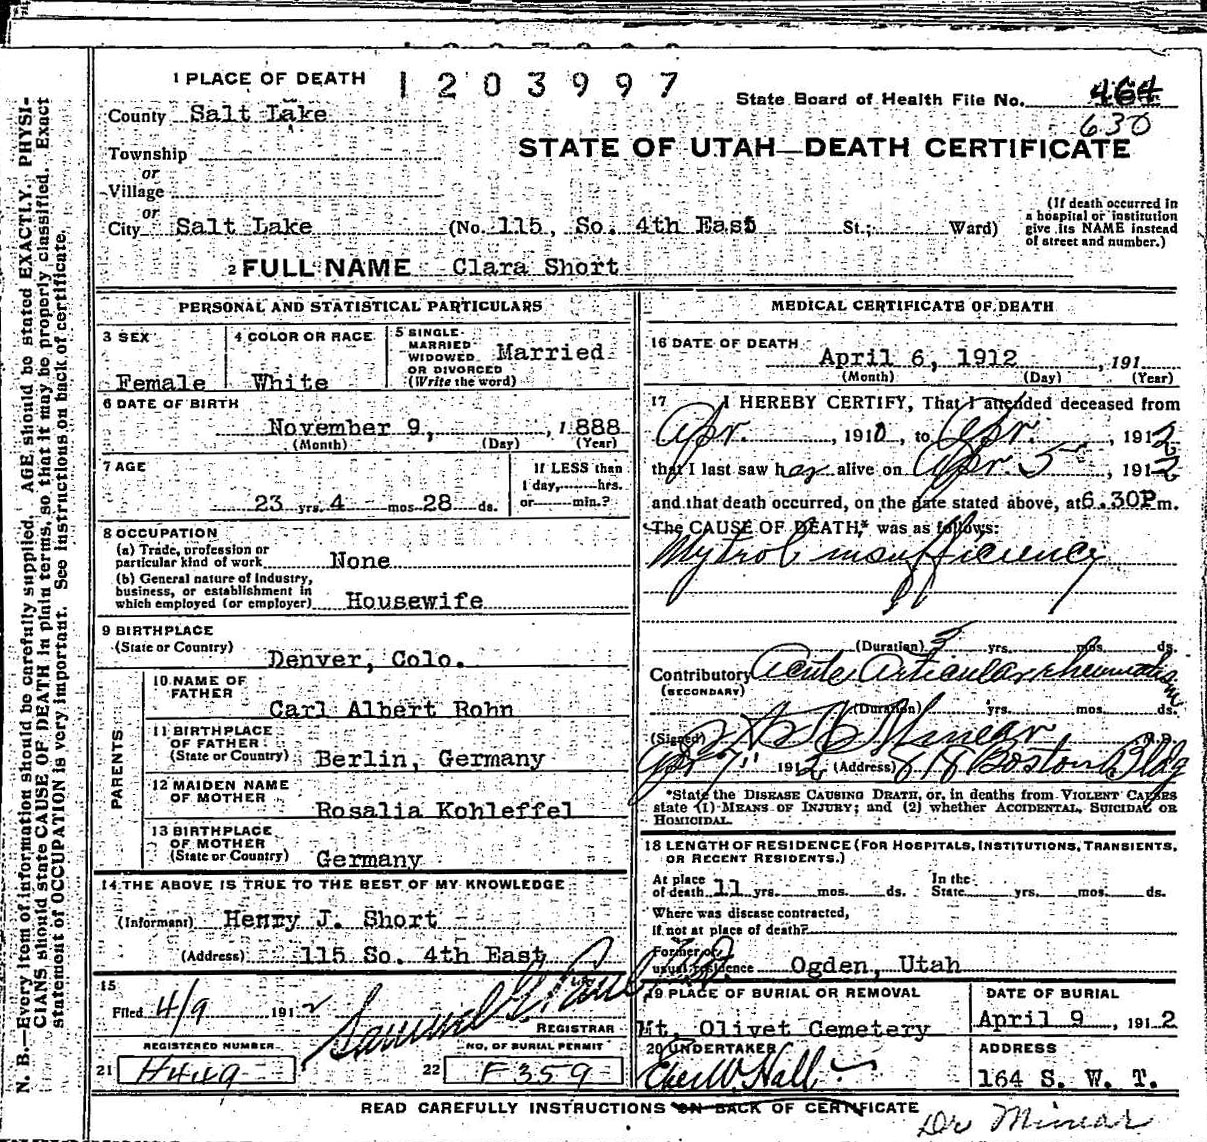 1 PLACE OF DEATH
1203997
State Board of Health File No. 464
630
County Salt Lake
STATE OF UTAH—DEATH CERTIFICATE
Township
or
Village
or
City Salt Lake (No. 115, So. 4th East St.; Ward)
(If death occurred in a hospital or institution give its NAME instead of street and number.)
2 FULL NAME Clara Short
PERSONAL AND STATISTICAL PARTICULARS
3 SEX
Female
4 COLOR OR RACE
White
5 SINGLE
MARRIED
WIDOWED
OR DIVORCED
(Write the word)
Married
6 DATE OF BIRTH
November 9, , 1888
(Month) (Day) (Year)
7 AGE
23 yrs. 4 mos. 28 ds.
If LESS than
1 day, hrs.
or min.?
8 OCCUPATION
(a) Trade, profession or
particular kind of work None
(b) General nature of industry,
business, or establishment in
which employed (or employer) Housewife
9 BIRTHPLACE
(State or Country)
Denver, Colo.
PARENTS
10 NAME OF
FATHER
Carl Albert Rohn
11 BIRTHPLACE
OF FATHER
(State or Country) Berlin, Germany
12 MAIDEN NAME
OF MOTHER
Rosalia Kohleffel
13 BIRTHPLACE
OF MOTHER
(State or Country) Germany
14 THE ABOVE IS TRUE TO THE BEST OF MY KNOWLEDGE
(Informant) Henry J. Short
(Address) 115 So. 4th East
15
Filed 4/9 1912 Samuel G. Paul
REGISTRAR
REGISTERED NUMBER
21 H449
NO. OF BURIAL PERMIT
22 F359
MEDICAL CERTIFICATE OF DEATH
16 DATE OF DEATH
April 6, 1912 , 191
(Month) (Day) (Year)
17 I HEREBY CERTIFY, That I attended deceased from
Apr. , 1910 , to Apr. , 1912
that I last saw her alive on Apr 5 , 1912
and that death occurred, on the date stated above, at 6.30P m.
The CAUSE OF DEATH,* was as follows:
Mytrol insufficiency
(Duration) 3 yrs. mos. ds.
Contributory Acute Articular rheumatism
(SECONDARY)
(Duration) yrs. mos. ds.
(Signed) Minear M.D.
Apr 7" 1912 (Address) 818 Boston Bldg
*State the DISEASE CAUSING DEATH, or, in deaths from VIOLENT CAUSES
state (1) MEANS OF INJURY; and (2) whether ACCIDENTAL, SUICIDAL OR
HOMICIDAL.
18 LENGTH OF RESIDENCE (FOR HOSPITALS, INSTITUTIONS, TRANSIENTS,
OR RECENT RESIDENTS.)
At place
of death 11 yrs. mos. ds.
In the
State yrs. mos. ds.
Where was disease contracted,
if not at place of death?
Former or
usual residence Ogden, Utah
19 PLACE OF BURIAL OR REMOVAL
Mt. Olivet Cemetery
DATE OF BURIAL
April 9 , 1912
20 UNDERTAKER
Eber W Hall
ADDRESS
164 S. W. T.
READ CAREFULLY INSTRUCTIONS ON BACK OF CERTIFICATE
Dr Minear
N. B.—Every item of information should be carefully supplied. AGE should be stated EXACTLY. PHYSI-
CIANS should state CAUSE OF DEATH in plain terms, so that it may be properly classified. Exact
statement of OCCUPATION is very important. See instructions on back of certificate.